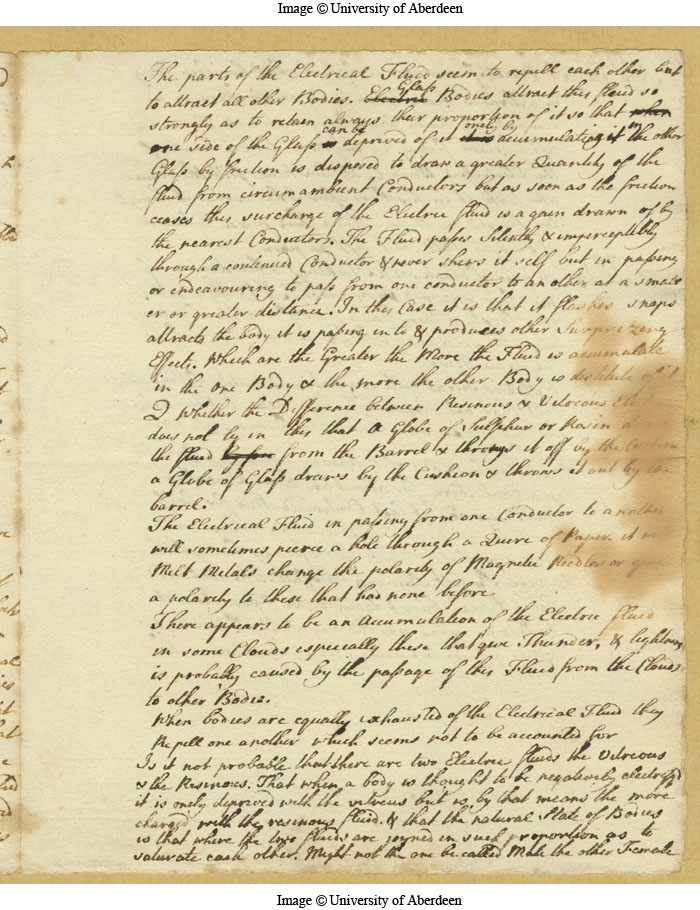 Image © University of Aberdeen
The parts of the Electrical Fluid seem to repell each other but
to attract all other Bodies. Electric Glass Bodies attract this fluid so
strongly as to retain always their proportion of it so that when
one side of the Glass is can be deprived of it it is onely by accumulating it in the other
Glass by friction is disposed to draw a greater Quantity of the
fluid from circumambient Conductors but as soon as the friction
ceases this surcharge of the Electric fluid is again drawn of by
the nearest Conductors. The Fluid passes Silently & imperceptibly
through a continued Conductor & never shews it self but in passing
or endeavouring to pass from one conductor to another at a small
er or greater distance. In this Case it is that it flashes snaps
attracts the body it is passing in to & produces other Surprizeing
Effects. Which are the Greater the More the Fluid is accumulate
in the one Body & the more the other Body is destitute of it
Q. Whether the Difference between Resinous & Vitreous
does not ly in this that a Globe of Sulphur or Rosin
the fluid from the Barrel & throws it off by the Cushion
a Globe of Glass draws by the Cushion & throws it out by the
barrel.
The Electrical Fluid in passing from one Conductor to another
will sometimes peirce a hole through a Quire of Paper. it
Melt Metals change the polarity of Magnetic Needles or give
a polarity to these that has none before
There appears to be an accumulation of the Electric fluid
in some Clouds especially these that give Thunder, & lightning
is probably caused by the passage of this Fluid from the Clouds
to other Bodies.
When bodies are equally exhausted of the Electrical Fluid they
Repell one another which seems not to be accounted for
Is it not probable that there are two Electric fluids the Vitreous
& the Resinous. That when a body is thought to be negatively electrifyd
it is onely deprived with the vitreous but is by that means the more
charged with the resinous fluid. & that the natural State of Bodies
is that where the two fluids are joyned in such proportion as to
saturate each other. Might not the one be called Male the other Female
Image © University of Aberdeen